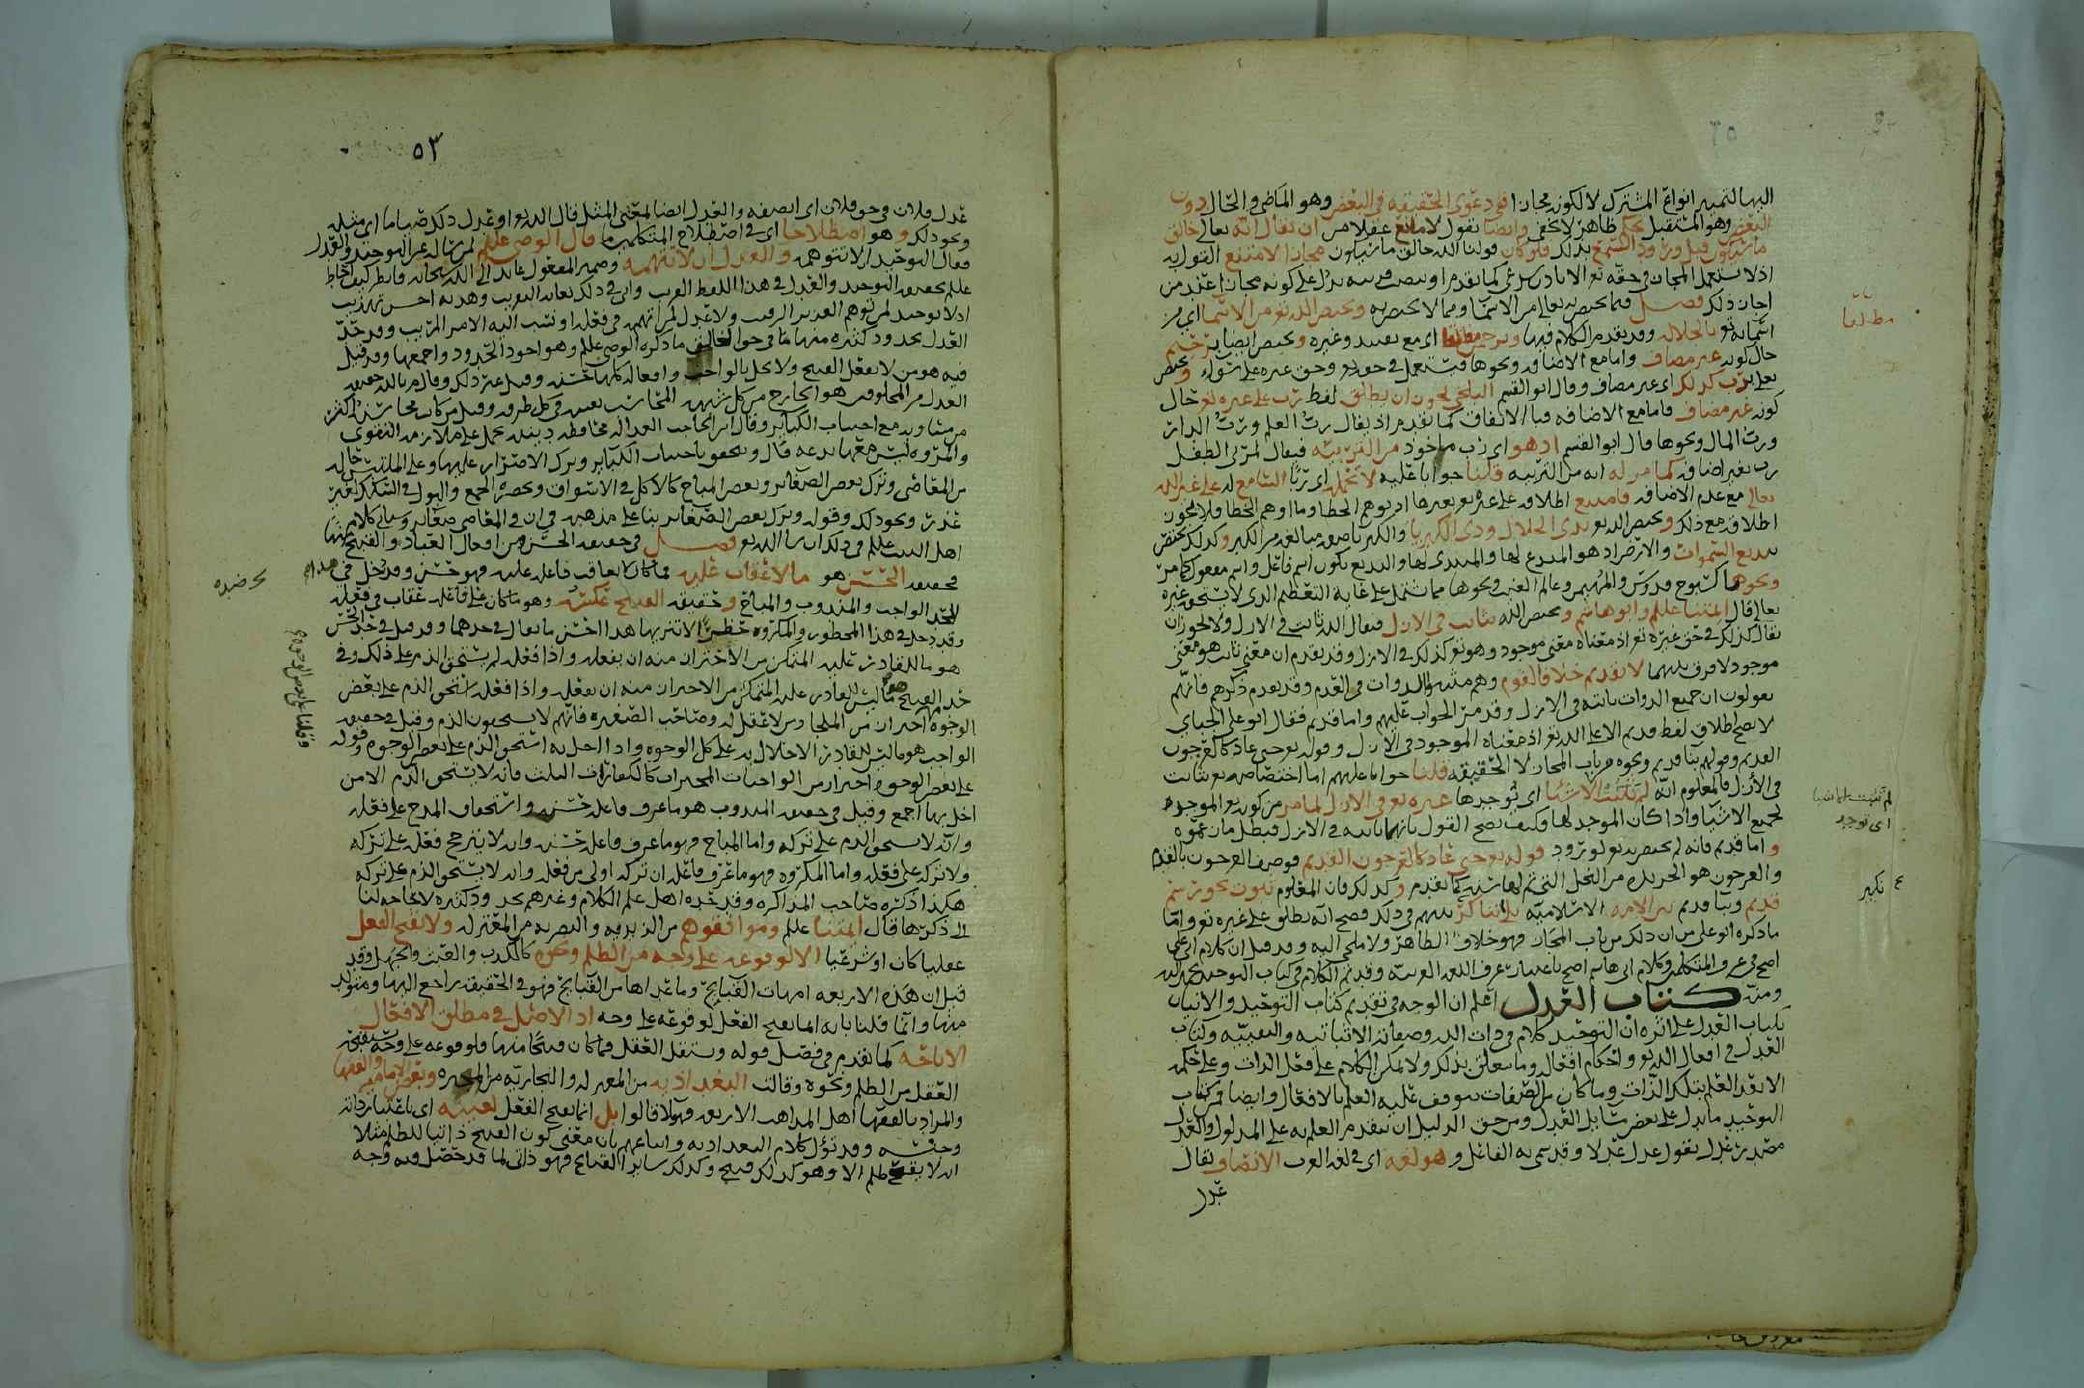 اليها لتمييز انواع المشترك لا لكونه مجازا ففي دعوى الحقيقه في البعض وهو الماضي والحال دون
البعض وهو المستقبل تحكم ظاهر لا يخفى وايضا نقول لا مانع عقلا من ان يقال الله تعالى خالق
ما سيكون قبل ورود السمع بذلك فلو كان قولنا الله خالق ما سيكون مجازا لامتنع القول به
اذ لا يستعمل المجاز في حقه تع الا باذن سمعي كما تقدم او بنصب قرينه تدل على كونه مجازا عند من
اجاز ذلك فصل فيما يختص به تعالى من الاسما ومما لا يختص به ويختص الله تع من الاسما اي من
اسمائه تع بالجلاله وقد تقدم الكلام فيها وبرحمن مطلقا اي مع تقييد وغيره ويختص ايضا برحيم
حال كونه غير مضاف واما مع الاضافه ونحوها فيستعمل في حقه تع وحق غيره على سواء ويختص
تعالى برب كذلك اي غير مضاف وقال ابو القسم البلخي يجوز ان يطلق لفظ رب على غيره تع حال
كونه غير مضاف فاما مع الاضافه فبالاتفاق كما تقدم اذ يقال رب العلم ورب الدار
ورب المال ونحوها قال ابو القسم اذ هو اي رب ماخوذ من التربيه فيقال لمربي الطفل
رب بغير اضافه كما مر له انه من التربيه قلنا جوابا عليه لا تحمله اي ربا السامع له على غير الله
تعالى مع عدم الاضافه فامتنع اطلاقه على غيره تع بغيرها اذ يوهم الخطا وما اوهم الخطا فلا يجوز
اطلاقه مع ذلك ويختص الله تع بذي الجلال وذي الكبريا والكبريا صفه مبالغه من الكبر وكذلك يختص
ببديع السموات والارض اذ هو المبدع لها والمبتدي لها والبديع يكون اسم فاعل واسم مفعول كما مر
ونحوها كسبوح قدوس والمهيمن وعالم الغيب ونحوها مما يشتمل على غايه التعظيم الذي لا يستحقه غيره
تعالى قال ائمتنا علم وابو هاشم ويختص الله بثابت في الازل فيقال الله ثابت في الازل ولا يجوز ان
يقال كذلك في حق غيره تع اذ معناه معنى موجود وهو تع كذلك في الازل وقد تقدم ان معنى ثابت هو معنى
موجود لا فرق بينهما لا بقديم خلافا لقوم وهم مثبتوا الذوات في القدم وقد تقدم ذكرهم فانهم
يقولون ان جميع الذوات ثابته في الازل وقد مر الجواب عليهم واما قديم فقال ابو علي الجبائي
لا يصح اطلاق لفظ قديم الا على الله تع اذ معناه الموجود في الازل وقوله تع حتى عاد كالعرجون
القديم وقولهم بنا قديم ونحوه من باب المجاز لا الحقيقه قلنا جوابا عليهم اما اختصاصه تع بثابت
في الازل فالمعلوم انه لم تثبت الاشيا اي توجدها غيره تع في الازل لما مر من كونه تع الموجد
لجميع الاشيا واذا كان الموجد لها فكيف يصح القول بانها ثابته في الازل فبطل ما زعموه
واما قديم فانه لم يختص به تع لورود قوله تع حتى عاد كالعرجون القديم فوصف العرجون بالقدم
والعرجون هو الجريده من النخل التي تم لها سنه كما تقدم وكذلك فان المعلوم ثبوت نحو رسم
قديم وبنا قديم بين الامه الاسلاميه بلا تناكر بينهم في ذلك فصح انه يطلق على غيره تع واما
ما ذكره ابو علي من ان ذلك من باب المجاز فهو خلاف الظاهر ولا ملجي اليه وقد قيل ان كلام ابي علي
اصح في عرف المتكلمين وكلام ابي هاشم اصح باعتبار عرف اللغه العربيه وقد تم الكلام في كتاب التوحيد بحمد الله
ومنه كتاب العدل اعلم ان الوجه في تقديم كتاب التوحيد والاتيان
بكتاب العدل على اثره ان التوحيد كلام في ذات الله وصفاته الاثباتيه والنفييه وكتاب
العدل في افعال الله تع واحكام افعاله وما يتعلق بذلك ولا يمكن الكلام على فعل الذات وعلى حكمه
الا بعد العلم بتلك الذات وما كان من الصفات يتوقف عليه العلم بالافعال وايضا فمن كتاب
التوحيد ما يدل على بعض مسايل العدل ومن حق الدليل ان يتقدم العلم به على المدلول والعدل
مصدر عدل تقول عدل عدلا وقد سمي به الفاعل وهو لغه اي في لغه العرب الانصاف يقال
عدل
مطلقا
لم تثبت الاشيا
اي توجد
٥٣
عدل فلان في حق فلان اي انصفه والعدل ايضا لمعنى المثل قال الله تع او عدل ذلك صياما اي مثله
ونحو ذلك وهو اصطلاحا اي في اصطلاح المتكلمين ما قال الوصي علم لمن ساله عن التوحيد والعدل
فقال التوحيد ان لا تتوهمه والعدل ان لا تتهمه وضمير المفعول عائد الى الله سبحانه فانظر كيف احاط
علم بحقيقه التوحيد والعدل في هذا اللفظ القريب واتى في ذلك بغايه التقريب وهذبه احسن تهذيب
اذ لا توحيد لمن توهم العزيز الرقيب ولا عدل لمن اتهمه في فعله او نسب اليه الامر المريب وقد حد
العدل بحدود كثيره منها ما في حق الخالق ما ذكره الوصي علم وهو اجود الحدود واجمعها وقد قيل
فيه هو من لا يفعل القبيح ولا يخل بالواجب وافعاله كلها حسنه وقيل غير ذلك وقال م بالله حقيقه
العدل من المخلوقين هو الخارج من كل شبهه المحاسب نفسه في كل طرفه وقيل من كان محاسنه اكثر
من مساويه مع اجتناب الكباير وقال ابن الحاجب العداله محافظه دينيه تحمل على ملازمه التقوى
والمروه ليس معها بدعه قال وتتحقق باجتناب الكباير وترك الاصرار عليها وعلى الملتبس حاله
من المعاصي وترك بعض الصغاير وبعض المباح كالاكل في الاسواق وبحضره الجمع والبول في السكك لغير
عذر ونحو ذلك وقوله وترك بعض الصغاير بنا على مذهبه في ان في المعاصي صغاير وسياتي كلام
اهل البيت علم في ذلك ان شا الله تع فصل في حقيقه الحسن من افعال العباد والقبيح منها
فحقيقه الحسن هو ما لا عقاب عليه فما كان لا يعاقب فاعله عليه فهو حسن وقد دخل في هذا
الحد الواجب والمندوب والمباح وحقيقه القبيح عكسه وهو ما كان على فاعله عقاب في فعله
وقد دخل في هذا المحظور والمكروه حظر الا تنزيها هذا احسن ما يقال في حدهما وقد قيل في حد الحسن
هو ما للقادر عليه المتمكن من الاحتراز منه ان يفعله واذا فعله لم يستحق الذم على ذلك وفي
حد القبيح هو ما ليس للقادر عليه المتمكن من الاحتراز منه ان يفعله واذا فعله استحق الذم على بعض
الوجوه احتراز من الملجا ومن لا عقل له وصاحب الصغيره فانهم لا يستحقون الذم وقيل في حقيقه
الواجب هو ما ليس للقادر الاخلال به على كل الوجوه واذا اخل به استحق الذم على بعض الوجوه وقوله
على بعض الوجوه احتراز من الواجبات المخيرات كالكفارات الثلاث فانه لا يستحق الذم الا من
اخل بها اجمع وقيل في حقيقه المندوب هو ما عرف فاعله حسنه واستحقاق المدح على فعله
وانه لا يستحق الذم على تركه واما المباح فهو ما عرف فاعله حسنه وانه لا يترجح فعله على تركه
ولا تركه على فعله واما المكروه فهو ما عرف فاعله ان تركه اولى من فعله وانه لا يستحق الذم على تركه
هكذا ذكره صاحب المذاكره وقد حده اهل علم الكلام وغيرهم بحدود كثيره لا حاجه لنا
الى ذكرها قال ائمتنا علم وموافقوهم من الزيديه والبصريه من المعتزله ولا يقبح الفعل
عقليا كان او شرعيا الا لوقوعه على وجه من الظلم ونحوه كالكذب والعبث والجهل وقد
قيل ان هذه الاربعه امهات القبايح وما عداها من القبايح فهو في الحقيقه راجع اليها ومتولد
منها وانما قلنا بانه انما يقبح الفعل لوقوعه على وجه اذ الاصل في مطلق الافعال
الاباحه كما تقدم في فصل قوله ويستقل العقل فما كان قبيحا منها فلوقوعه على وجه يقتضيه
العقل من الظلم ونحوه وقالت البغداديه من المعتزله والنجاريه من المجبره وبعض الاماميه والفقها
والمراد بالفقها اهل المذاهب الاربعه فهولا قالوا بل انما يقبح الفعل لعينه اي باعتبار ذاته
وجنسه وقد تؤول كلام البغداديه واتباعهم بان معنى كون القبيح ذاتيا للظلم مثلا
انه لا يقع ظلم الا وهو كذلك قبيح وكذلك ساير القبايح فهو ذاتي لما قد حصل فيه وجه